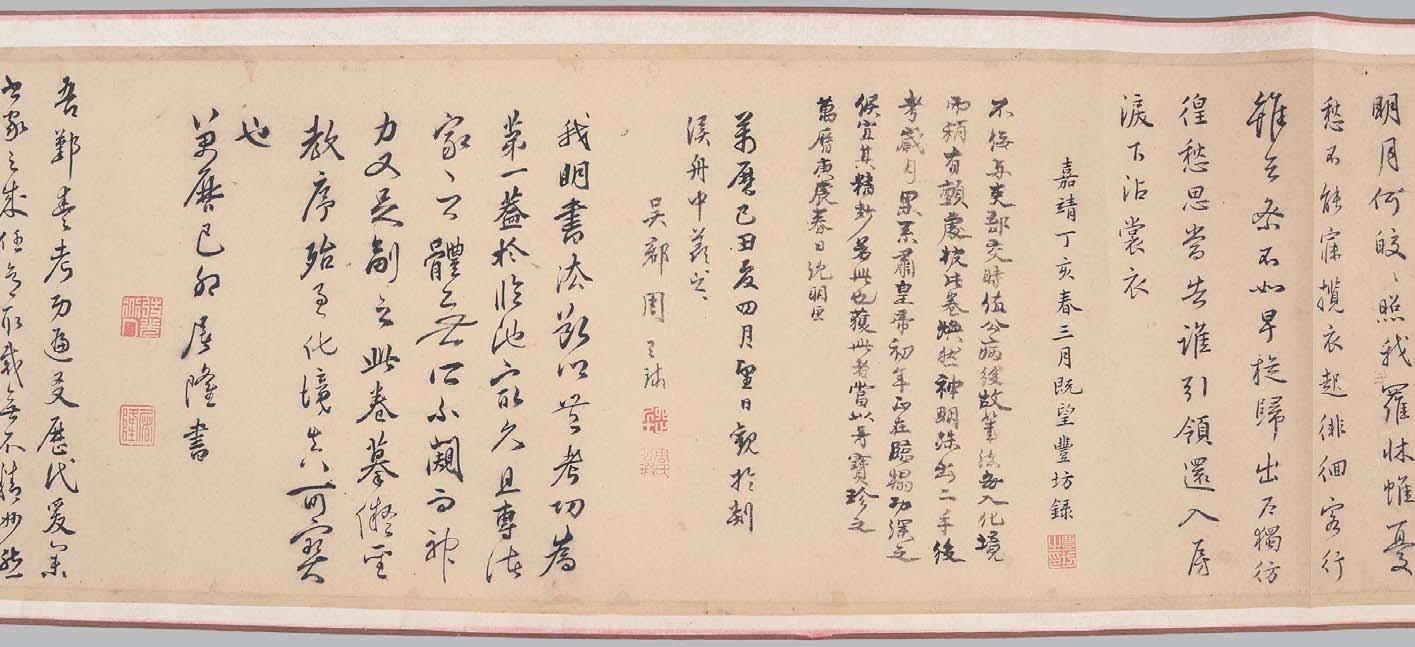 明月何皎〻照我羅牀幃憂
愁不能寐攬衣起徘徊客行
雖云樂不如早旋歸出戶獨彷
徨愁思當告誰引領還入房
淚下沾裳衣
嘉靖丁亥春三月既望豐坊錄
不佞與吏部交時值公病後故筆法每入化境
而稍有顫處按此卷煥然神明殊出二手後
考歲月果系肅皇帝初年正在臨摹功深之
候宜其精妙若此也獲此者當以吾寶珍之
萬曆庚辰春日沈明臣
萬曆己丑夏四月望日觀於剡
溪舟中
吳郡周
我明書法以豐考功為
第一蓋於臨池家最久且專諸
家之體無所不闚而神
力又足副之此卷摹擬聖
教序殆至化境真可寶
也
萬曆己卯屠隆書
吾鄞豐考功遍父歷代
書家之 任 取裁無不精妙然